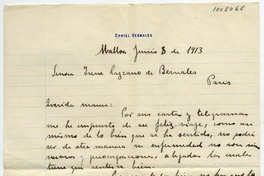 1008068
DANIEL BERNALES
Mallon Junio 8 de 1913
Señora Irene Lazcano de Bernales
Paris
Querida mama:
Por sus cartas y telegramas
me he impuesto de su feliz viaje, como asi
mismo de lo bien que se ha sentido, no podia
ser de otra manera su enfermedad no son sino
nervios y preocupaciones, alejadas las cuales
tiene que estar bien.